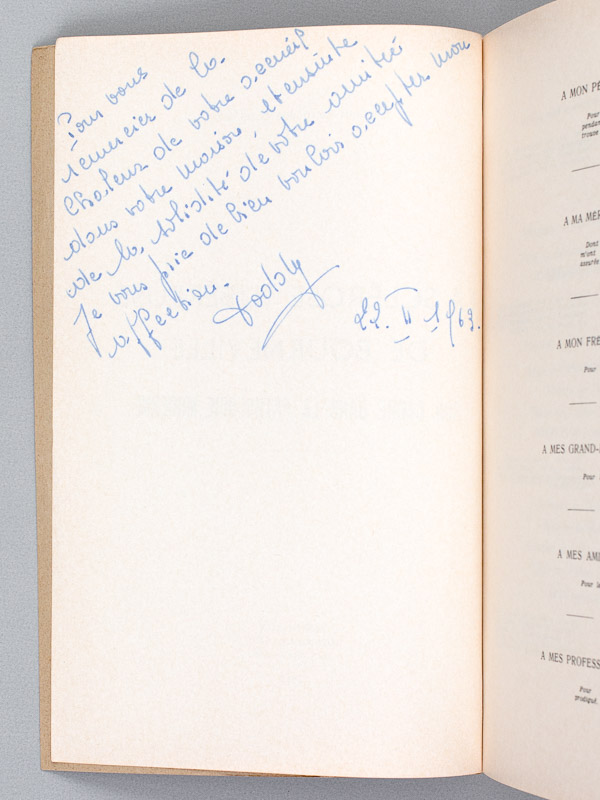 Pour vous
remercier de la
chaleur de votre accueil
dans votre maison, et ensuite
de la solidité de votre amitié
Je vous prie de bien vouloir accepter mon
affection.
22. II 1963.
A MON PÈ
Pour
pendan
trouve
A MA MER
Dont
m'ont
assurée
A MON FRÈ
Pour
A MES GRAND-
Pour
A MES AMI
Pour la
A MES PROFESS
Pour
prodigué.